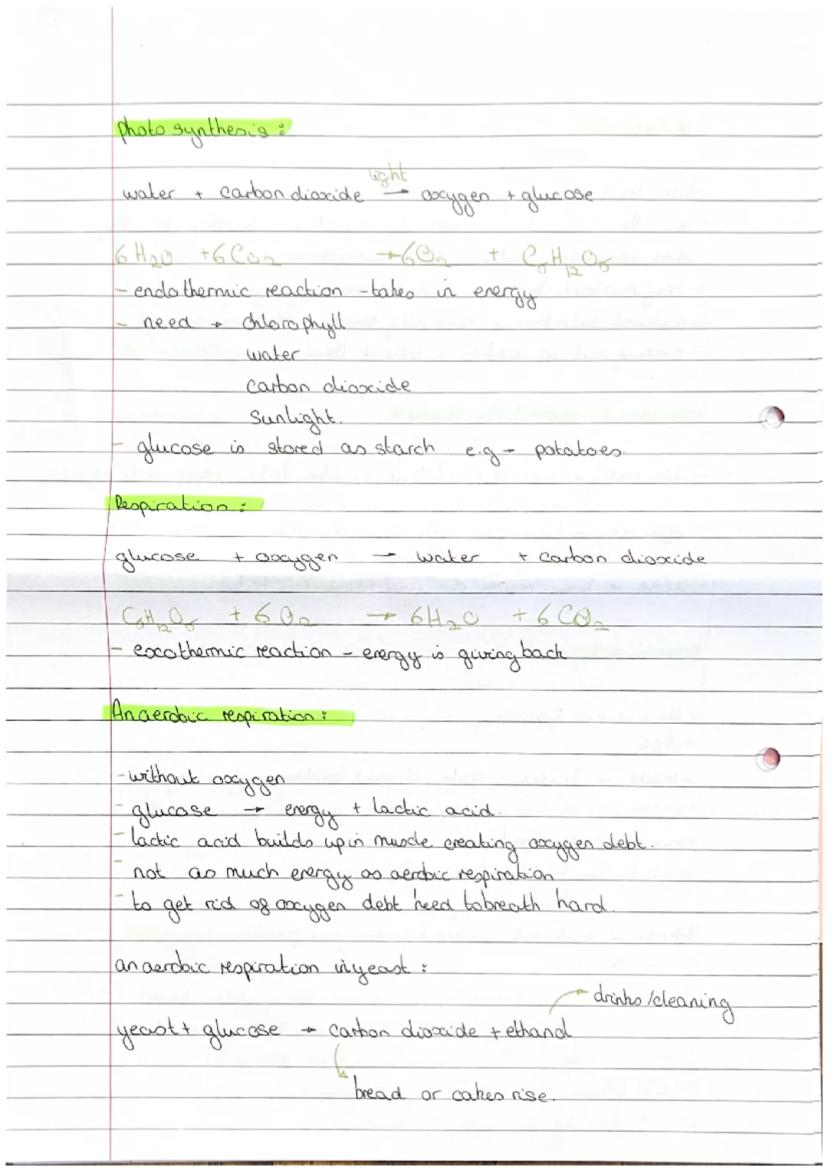 photosynthesis :
light
water + carbon dioxide → oxygen + glucose
6H₂O + 6CO₂ → 6O₂ + C₆H₁₂O₆
- endothermic reaction - takes in energy
- need → chlorophyll
water
carbon dioxide
sunlight.
- glucose is stored as starch e.g - potatoes.
Respiration :
glucose + oxygen → water + carbon dioxide
C₆H₁₂O₆ + 6O₂ → 6H₂O + 6CO₂
- exothermic reaction - energy is giving back
Anaerobic respiration :
- without oxygen
- glucose → energy + lactic acid.
- lactic acid builds up in muscle creating oxygen debt.
- not as much energy as aerobic respiration
- to get rid of oxygen debt need to breath hard.
anaerobic respiration in yeast :
drinks/cleaning
yeast + glucose → carbon dioxide + ethanol
bread or cakes rise.